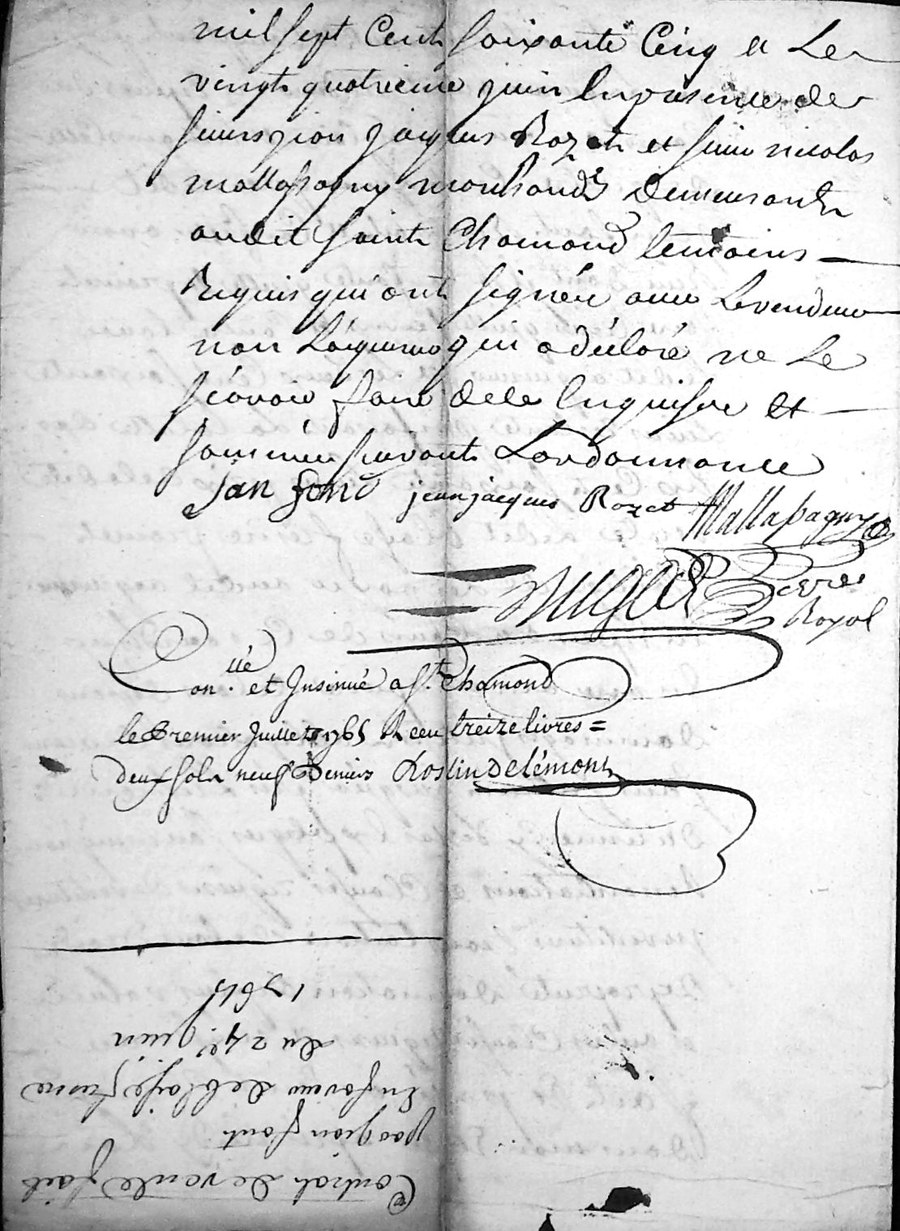 mil sept Cent soixante Cinq et Le
vingt quatrieme juin En présence de
sieurs jean jacques Rozet et sieur nicolas
mallassagny marchands Demeurants
audit saint Chamond temoins
Requis qui ont signéz avec Levendeur
non L'aquereur qui a déclaré ne Le
scavoir faire dece Enquis et
sommé suivant L'ordonnance
jan font jeanjacques Rozet Mallassagny
Royal
Con.llé et Insinué a St. Chamond
le Premier Juillet 1765 Receu treize livres =
deux sols neuf Deniers Roslin Delémont
Contrat de vente fait
par jean font
En faveur de blaise
du 24e. juin
1765